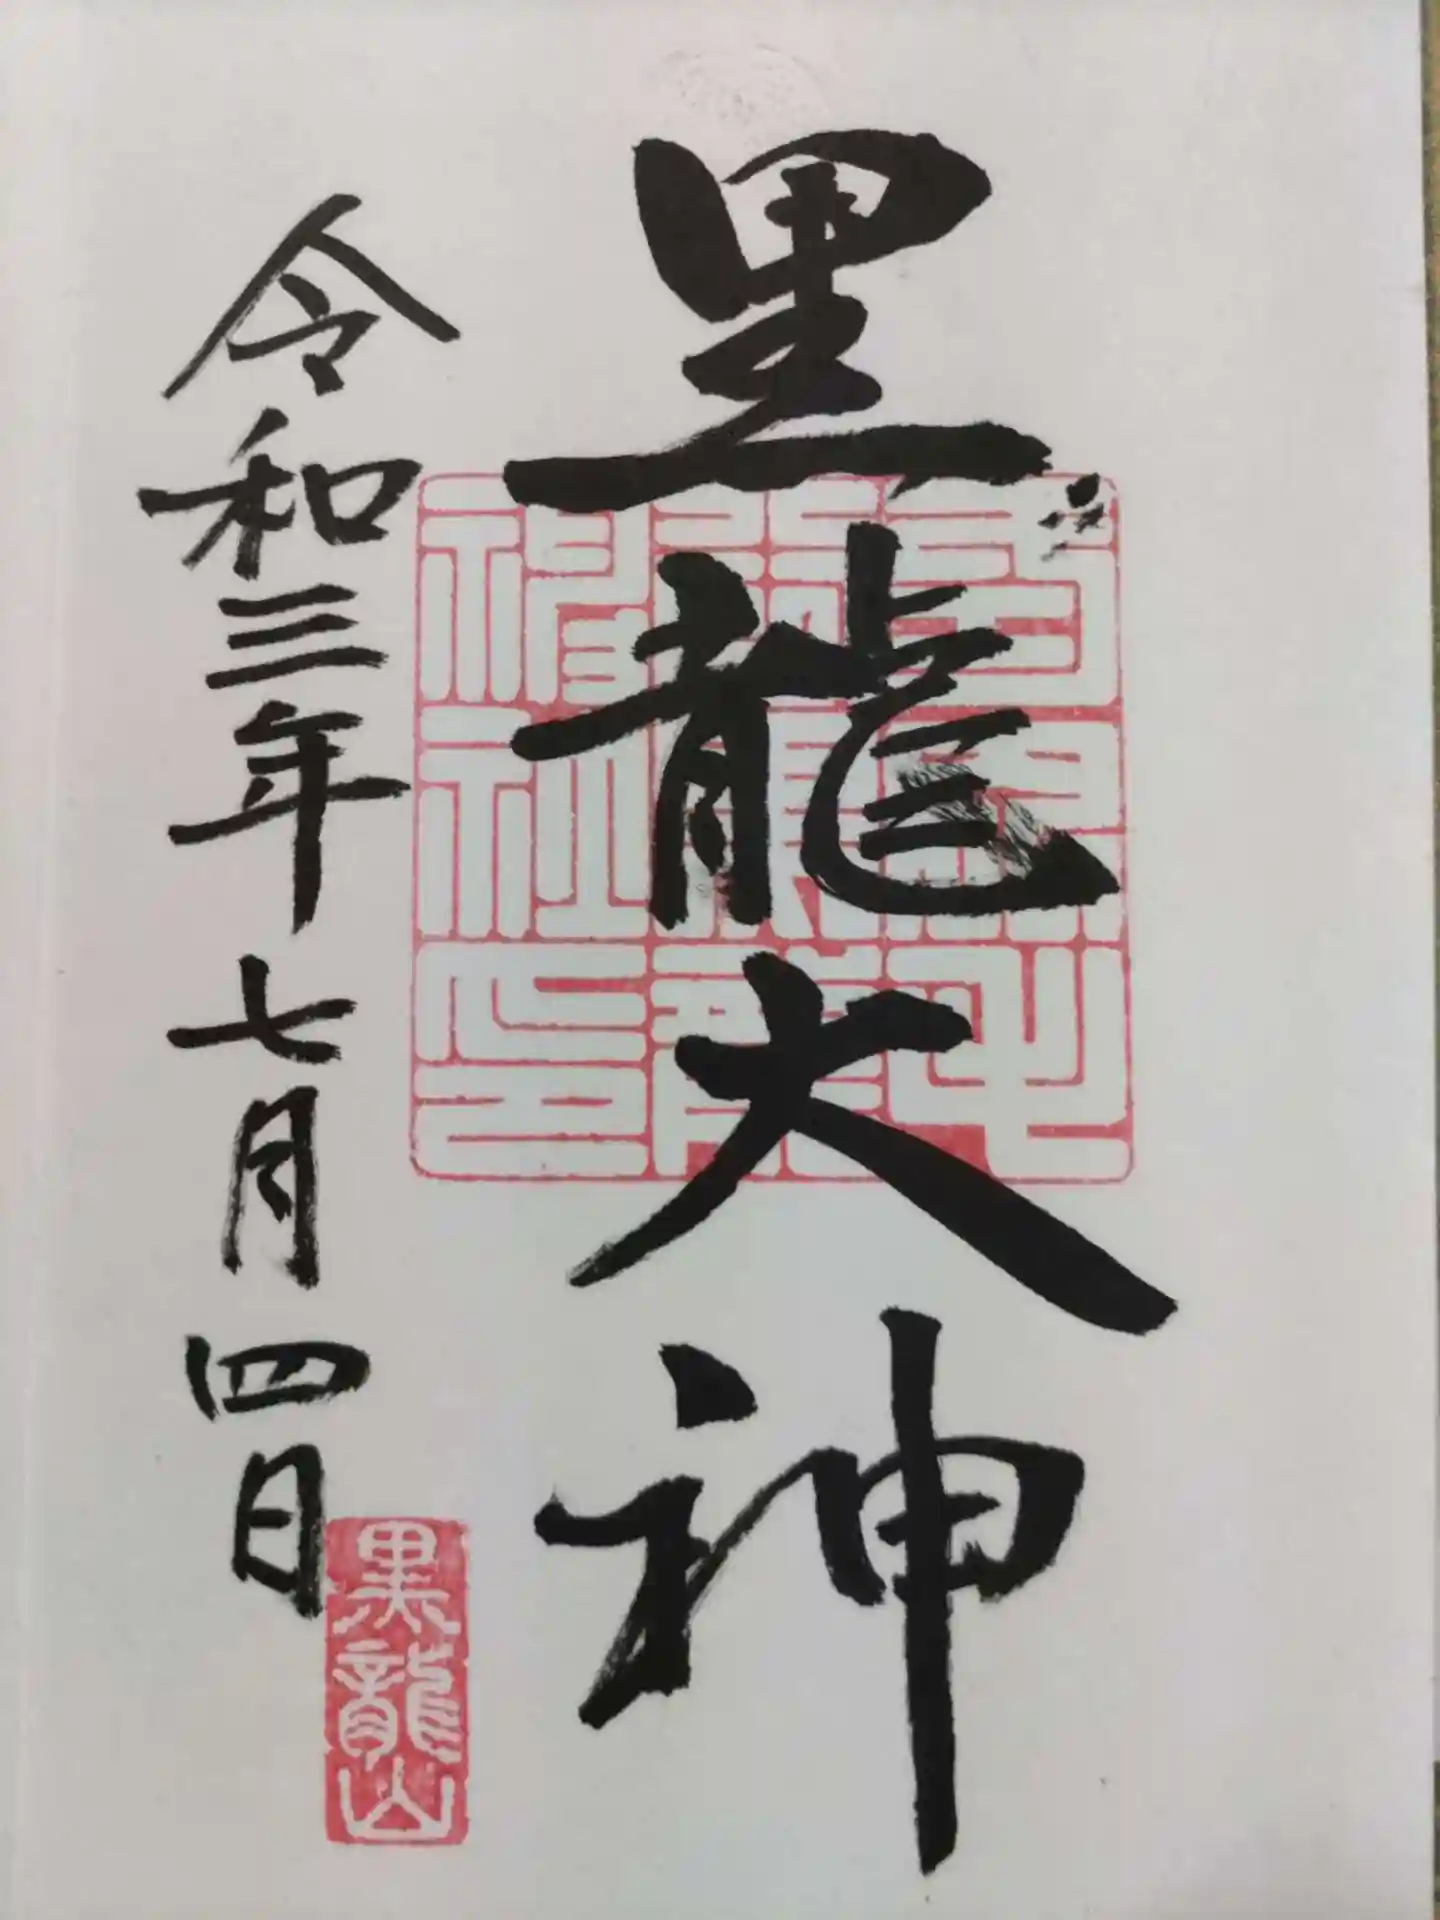 黒龍大神
令和三年七月四日
黒龍山